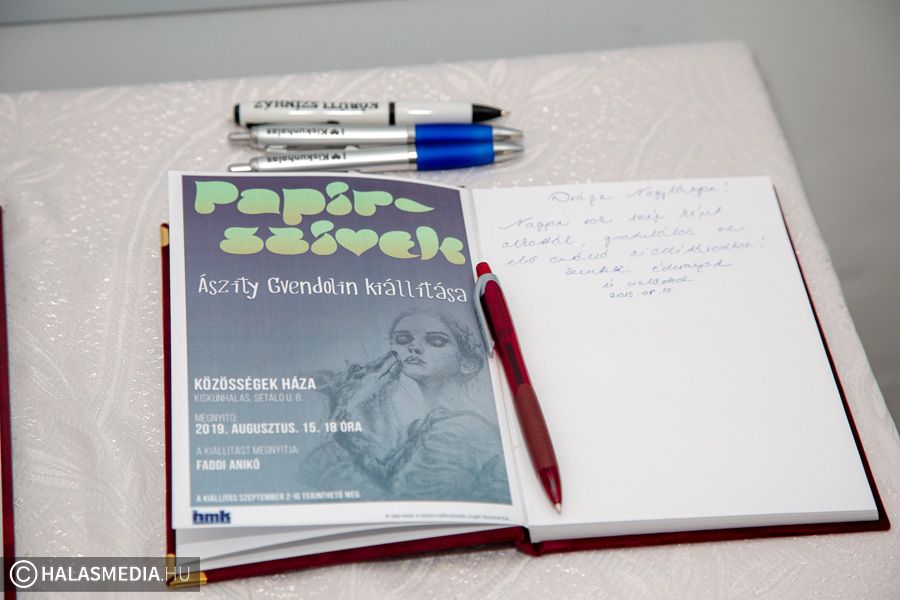 KÖRÚTI SZÍNHÁZ
I ♥ Kiskunhalas
I ♥ Kiskunhalas
Papír-
szívek
Ászity Gvendolin kiállítása
KÖZÖSSÉGEK HÁZA
KISKUNHALAS, SÉTÁLÓ U. 8.
MEGNYITÓ:
2019. AUGUSZTUS. 15. 18 ÓRA
A KIÁLLÍTÁST MEGNYITJA:
FADDI ANIKÓ
A KIÁLLÍTÁS SZEPTEMBER 2-IG TEKINTHETŐ MEG.
hmk
Drága
Nagyon sok szép képet
alkottál, gratulálok az
első önálló kiállításodhoz!
Szeretettel
és családod
© HALASMEDIA.HU